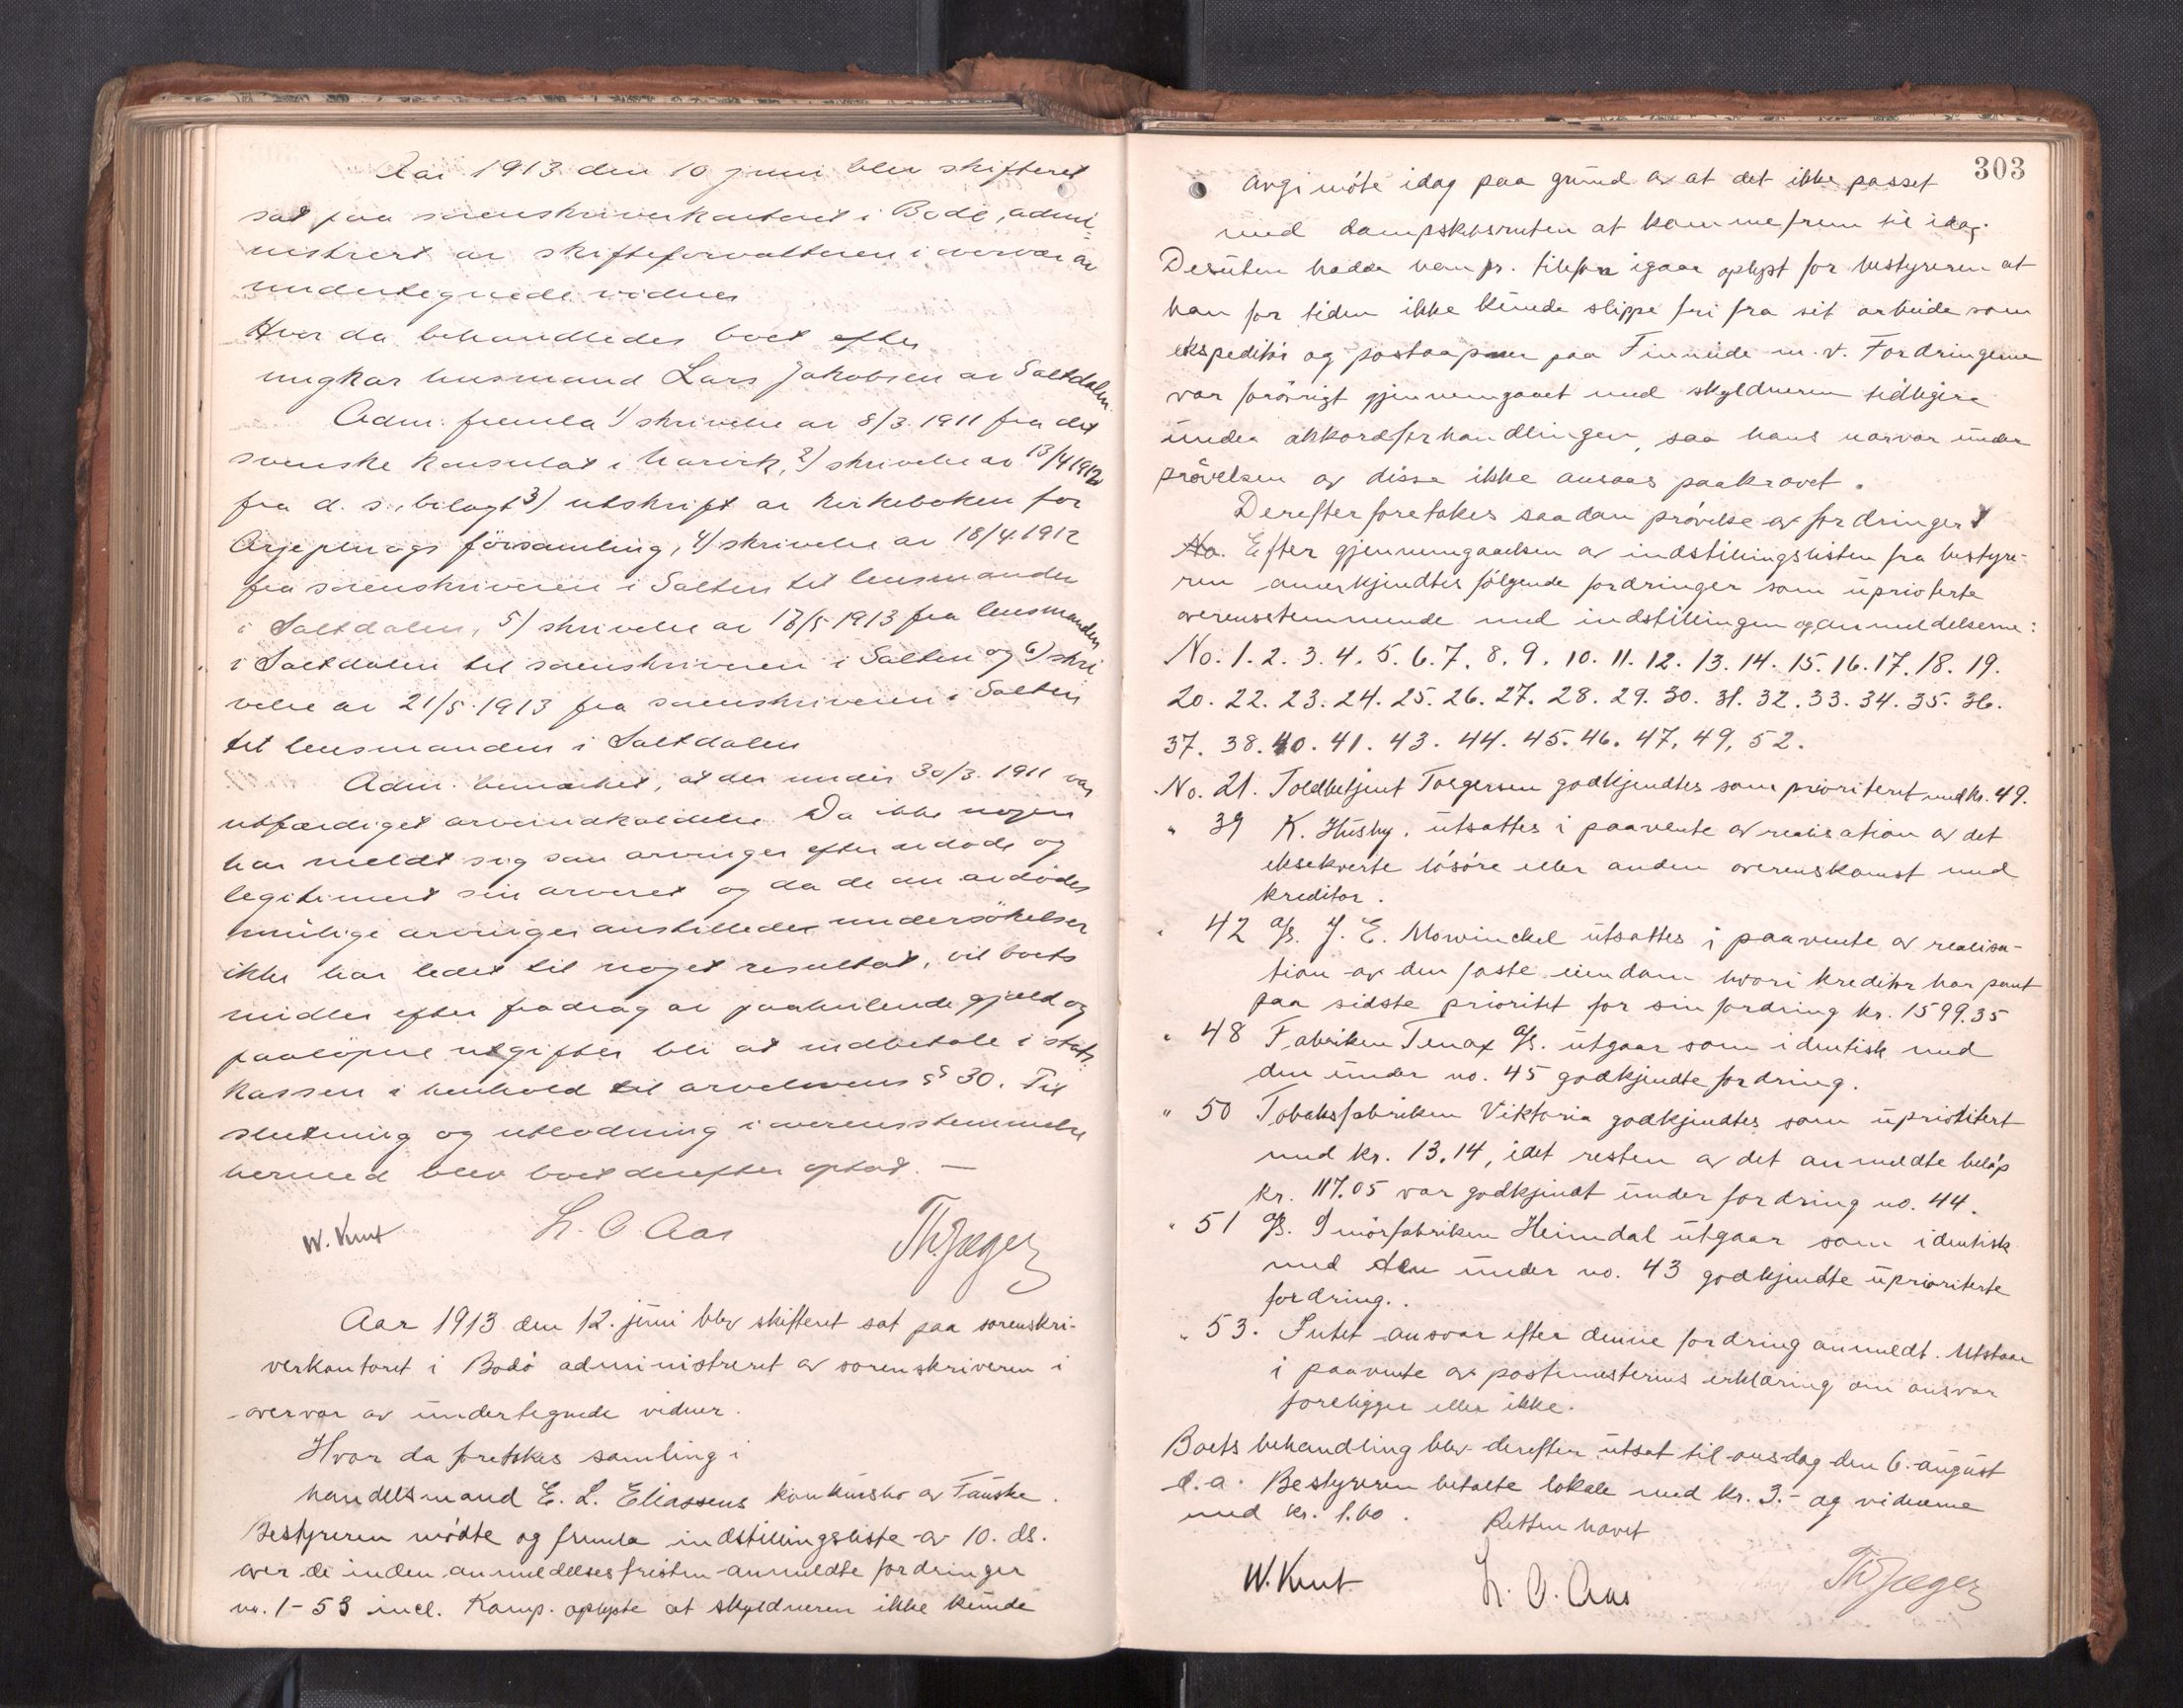 Aar 1913 den 10 juni blev skifteret
sat paa sorenskriverkontoret i Bodø, admi-
nistrert av skifteforvalteren i overvær av
undertegnede vidner
Hvor da behandledes boet efter
ungkar husmand Lars Jakobsen av Saltdalen.
Adm. fremla 1) skrivelse av 8/3 1911 fra det
svenske konsulat i Narvik, 2) skrivelse av 13/4 1912
fra d. s., bilagt 3) utskrift av kirkeboken for
Arjeplougs församling, 4) skrivelse av 18/4 1912
fra sorenskriveren i Salten til lensmanden
i Saltdalen, 5) skrivelse av 18/5 1913 fra lensmanden
i Saltdalen til sorenskriveren i Salten og 6) skri
velse av 21/5 1913 fra sorenskriveren i Salten
til lensmanden i Saltdalen
Adm. bemærket, at der under 30/3 1911 var
utfærdiget arveindkaldelse. Da ikke nogen
har meldt sig som arvinger efter avdøde og
legitimert sin arveret og da de om avdødes
mulige arvinger anstilledes undersökelser
ikke har ledet til noget resultat, vil boets
midler efter fradrag av paahvilende gjæld og
paaløpne utgifter bli at indbetale i stats
kassen i henhold til arvelovens § 30. Til
slutning og utlodning i overensstemmelse
hermed blev boet derefter optat. —
W. Knut L. O. Aas Th Jæger
Aar 1913 den 12. juni blev skifteret sat paa sorenskri-
verkontoret i Bodó administreret av sorenskriveren i
overvær av undertegnede vidner.
Hvor da foretokes samling i
handelsmand E. L. Eliassens konkursbo av Fauske.
Bestyreren mødte og fremla indstillingsliste av 10. ds.
over de inden anmeldelsesfristen anmeldte fordringer
no. 1-53 incl. Komp. oplyste at skyldneren ikke kunde
303
avgi móte idag paa grund av at det ikke passet
med dampskibsruten at komme frem til idag.
Desuten hadde han pr. telefon igaar oplyst for bestyreren at
han for tiden ikke kunde slippe fri fra sit arbeide som
ekspeditór og postaapner paa Finneide m. v. Fordringerne
var forövrigt gjennemgaaet med skyldneren tidligere
under akkordforhandlingen, saa hans nærvær under
prövelsen av disse ikke ansaaes paakrævet.
Derefter foretokes saadan prövelse av fordringer
No. Efter gjennemgaaelsen av indstillingslisten fra bestyre-
ren anerkjendtes følgende fordringer som uprioriterte
overensstemmende med indstillingen og anmeldelserne:
No. 1. 2. 3. 4. 5. 6. 7. 8. 9. 10. 11. 12. 13. 14. 15. 16. 17. 18. 19.
20. 22. 23. 24. 25. 26. 27. 28. 29. 30. 31. 32. 33. 34. 35. 36.
37. 38. 40. 41. 43. 44. 45. 46. 47. 49, 52.
No. 21. Toldbetjent Torgersen godkjendtes som prioriteret med kr. 49.
" 39 K. Husby. utsattes i paavente av realisation av det
eksekverte lösöre eller anden overenskomst med
kreditor.
" 42 A/S. J. E. Mowinckel utsattes i paavente av realisa-
tion av den faste eiendom hvori kreditor har pant
paa sidste prioritet for sin fordring kr. 1599.35
" 48 Fabriken Tenax A/S. utgaar som identisk med
den under no. 45 godkjendte fordring.
" 50 Tobaksfabriken Viktoria godkjendtes som uprioritert
med kr. 13.14, idet resten av det anmeldte beløp
kr. 117.05 var godkjendt under fordring no. 44.
" 51 A/S. Smörfabriken Heimdal utgaar som identisk
med den under no. 43 godkjendte uprioriterte
fordring.
" 53. Intet ansvar efter denne fordring anmeldt. Utstaar
i paavente av postmesterens erklæring om ansvar
foreligger eller ikke.
Boets behandling blev derefter utsat til onsdag den 6. august
d. a. Bestyreren betalte lokale med kr. 3.- og vidnerne
med kr. 1.60. Retten hævet
W. Knut L. O. Aas Th Jæger